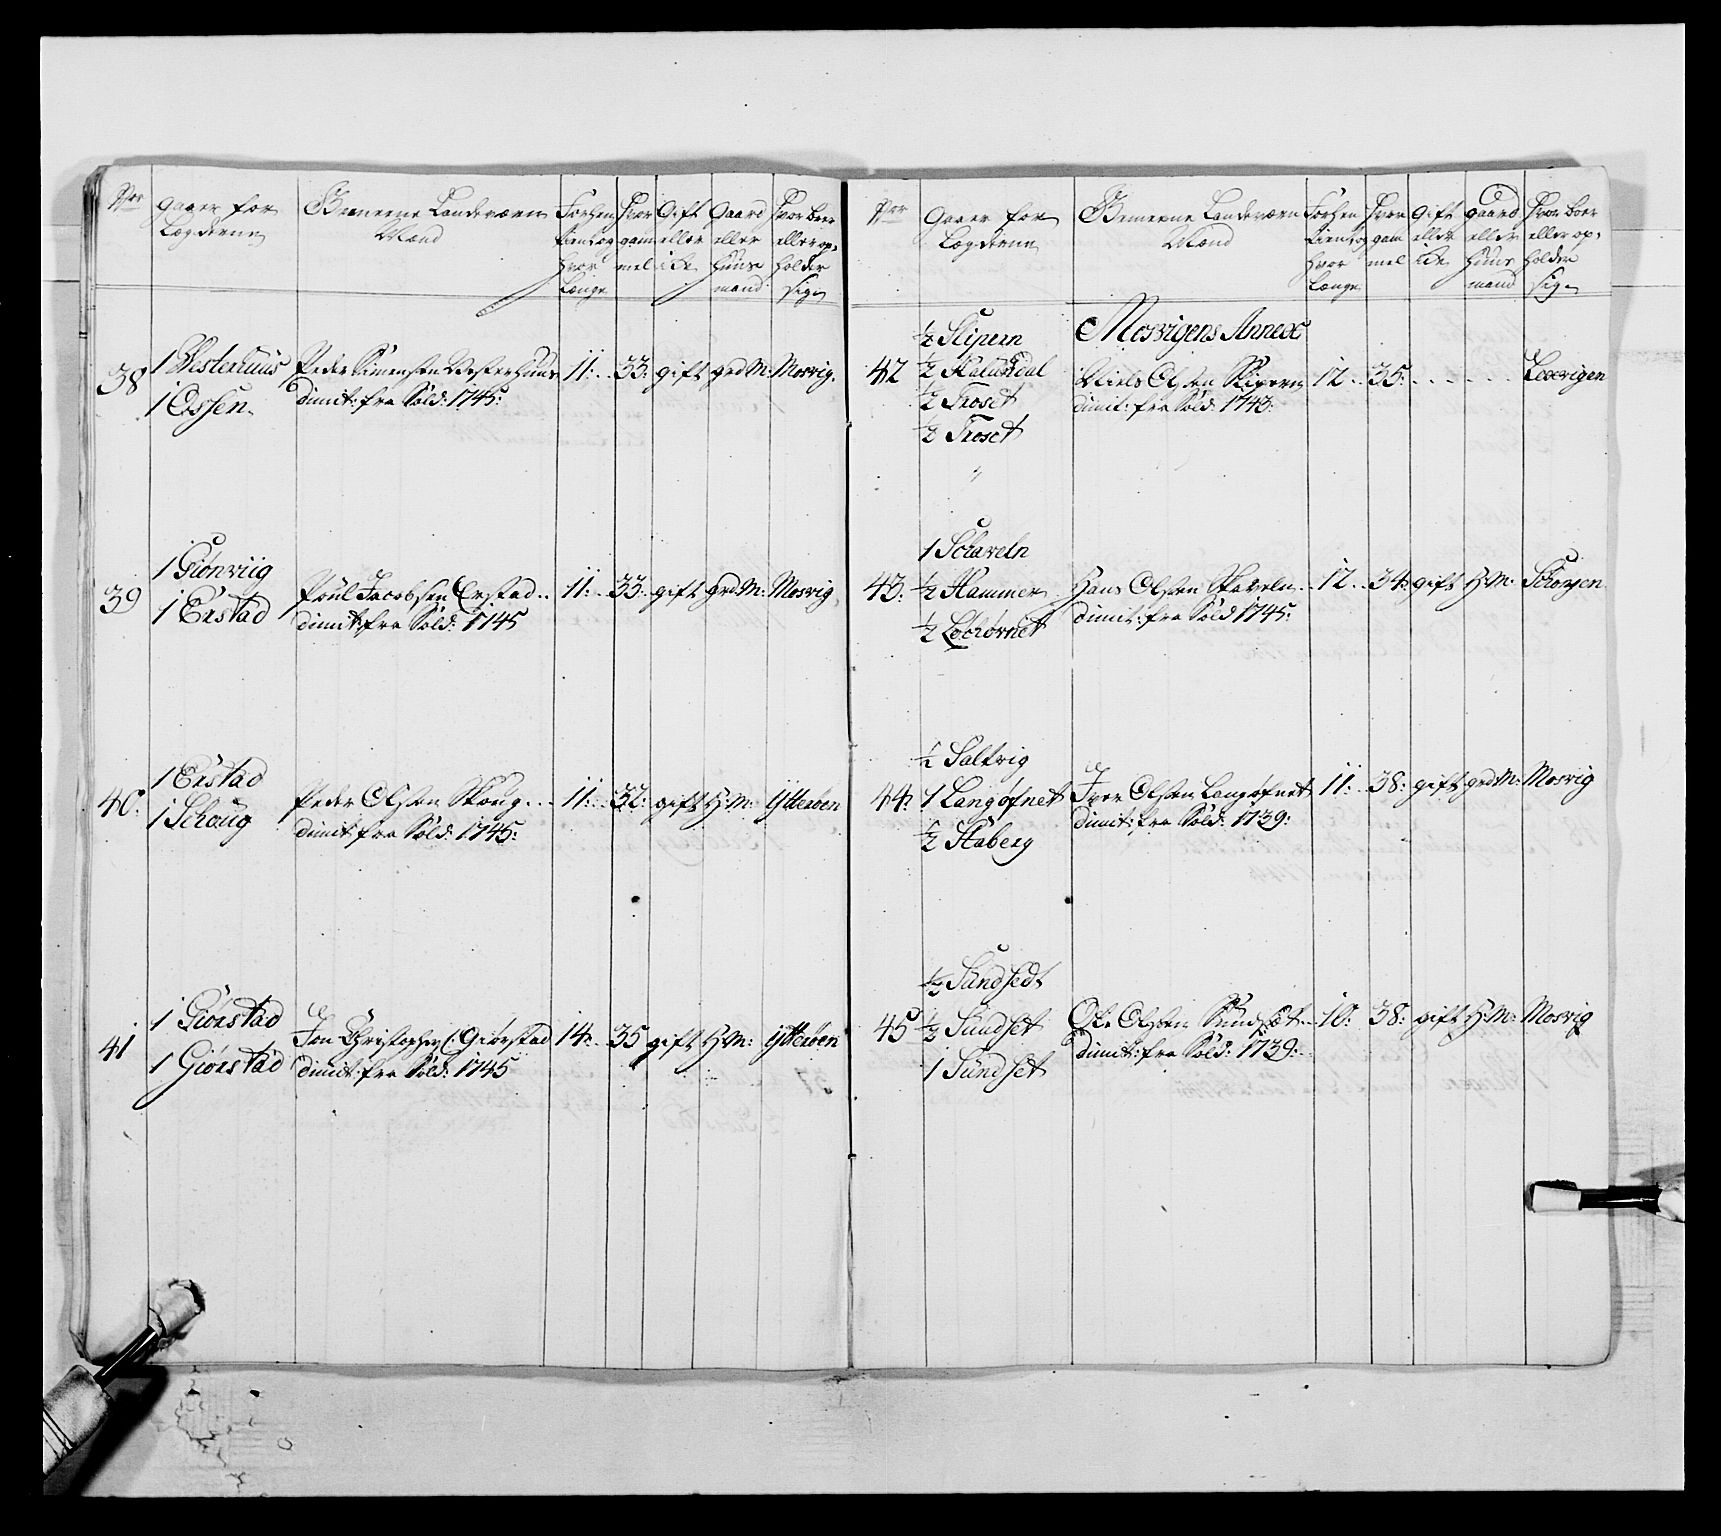 Nor
Gaaer for
Lægderne
Gemeene Landeværn
Mænd
Forhen
tient og
hvor
Længe
Hvor
gam
mel
Gift
eller
icke
Gaard
eller
Huus
mand
Hvor boer
eller op-
holder
sig
38
1 Westerhuus
1 Ossen
Peder Simensen Westerhuus
dimit: fra Sold: 1745:
11: 33: gift grd M: Mosvig.
39
1 Grønviig
1 Erstad
Poul Jacobsen Erstad
dimit: fra Sold: 1745
11: 33: gift grd M: Mosvig
40:
1 Erstad
1 Schoug
Peder Olsen Skoug
dimit: fra Sold: 1745:
11: 32: gift H: M: Ytterøen
41
1 Giørstad
1 Giørstad
Jon Christophers: Giørstad
dimit: fra Sold: 1745
14: 35 gift H: M: Ytterøen
Nor
Gaaer for
Lægderne
Gemeene Landeværn
Mænd
Forhen
tient og
hvor
Længe
Hvor
gam
mel
Gift
eller
icke
Gaard
eller
Huus
mand
Hvor boer
eller op-
holder
sig
Mosvigens Annex
42
1/2 Slipern
1/2 Kalundal
1/2 Troset
1/2 Troset
Niels Olsen
dimit: fra Sold: 1743:
12 35: Lexvigen
43:
1 Schaveln
1/2 Hammer
1/2
Hans Olsen Skaveln
dimit: fra Sold 1745:
12 34: gift H: M: Schoujen
44:
1/2 Saltvig
1 Langøfnet
1/2 Staberg
Iver Olsen Langøfnet
dimit: fra Sold: 1739:
11: 38: gift grd M: Mosvig
45
1/2 Sundsedt
1/2 Sundset
1 Sundset
Ole Olsen Sundset
dimit: fra Sold: 1739:
10: 38: gift H: M: Mosvig